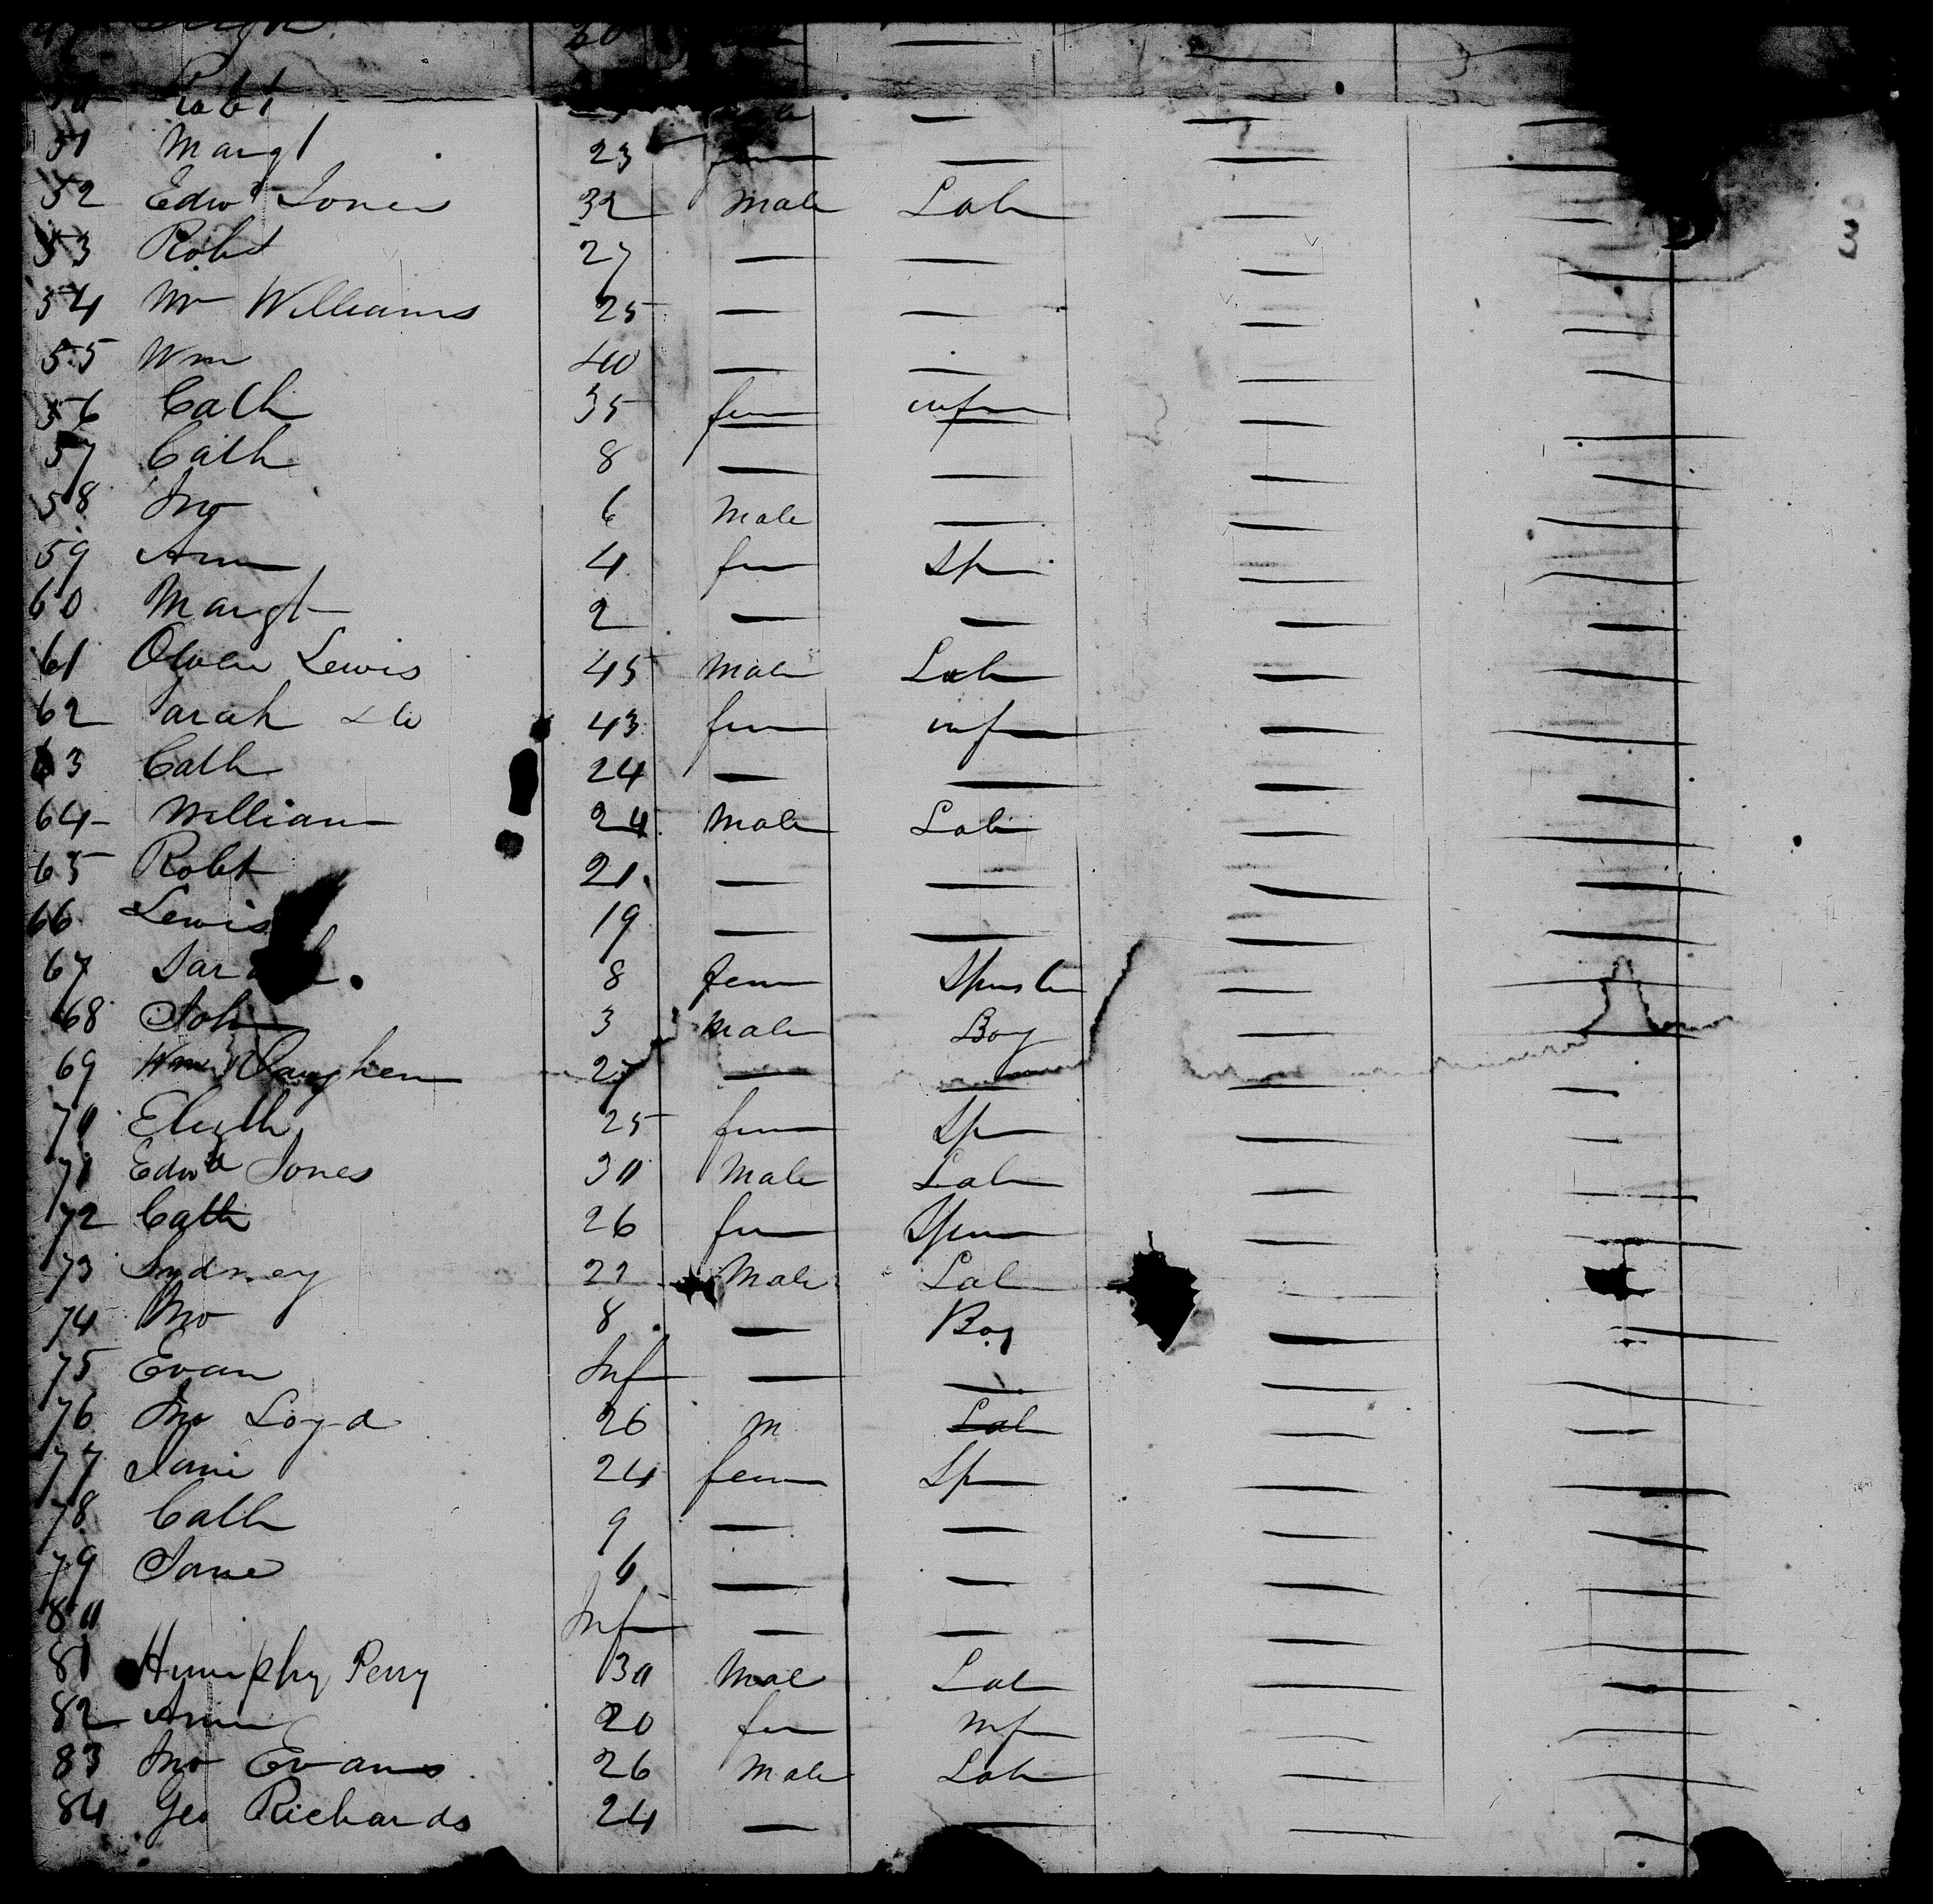 Robt
51 Margt 23 fem
52 Edwd Jones 32 Male Lab
53 Robt 27 — —
54 Wm Williams 25 — —
55 Wm 40 — —
56 Cath 35 fem wf
57 Cath 8 — —
58 Jno 6 Male —
59 Ann 4 fem Sp
60 Margt 2 — —
61 Owen Lewis 45 Male Lab
62 Sarah do 43 fem wf
63 Cath 24 — —
64 William 24 Male Lab
65 Robt 21 — —
66 Lewis 19 — —
67 Sarah 8 fem Spinster
68 John 3 Male Boy
69 Wm Vaughen 27 — —
70 Elizth 25 fem Sp
71 Edwd Jones 30 Male Lab
72 Cath 26 fem Spin
73 Sydney 22 Male Lab
74 Jno 8 — Boy
75 Evan Inf — —
76 Jno Loyd 26 M Lab
77 Jane 24 fem Sp
78 Cath 9 — —
79 Jane 6 — —
80 Inf — —
81 Humphy Perry 30 Mal Lab
82 Ann 20 fem wf
83 Jno Evans 26 Male Lab
84 Geo Richards 24 — —
3